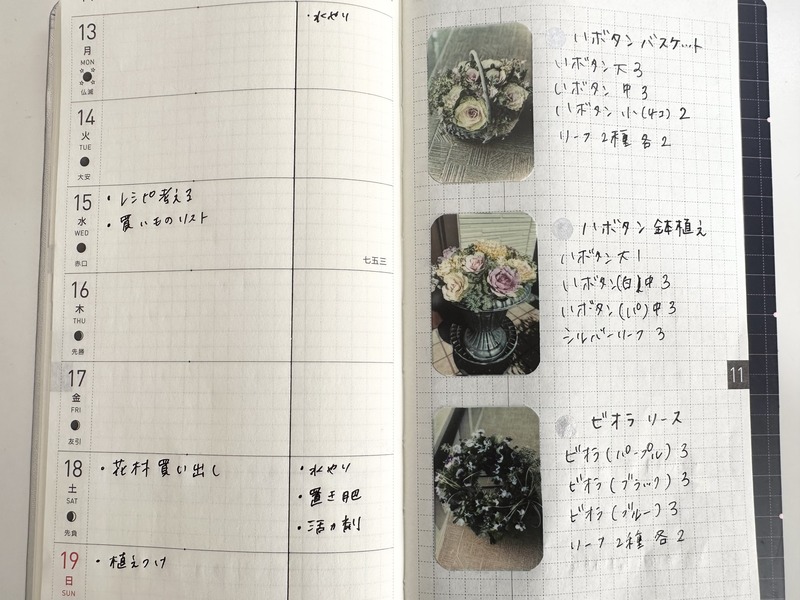 13
月
MON
仏滅
・水やり
14
火
TUE
大安
15
水
WED
赤口
・レシピ考える
・買いものリスト
七五三
16
木
THU
先勝
17
金
FRI
友引
18
土
SAT
先負
・花材買い出し
・水やり
・置き肥
・活力剤
19
日
SUN
・植えつけ
ハボタン バスケット
ハボタン 大 3
ハボタン 中 3
ハボタン 小(4コ) 2
リーフ 2種 各2
ハボタン 鉢植え
ハボタン大 1
ハボタン(白)中 3
ハボタン(パ)中 3
シルバーリーフ 3
11
ビオラ リース
ビオラ(パープル) 3
ビオラ(ブラック) 3
ビオラ(ブルー) 3
リーフ 2種 各2